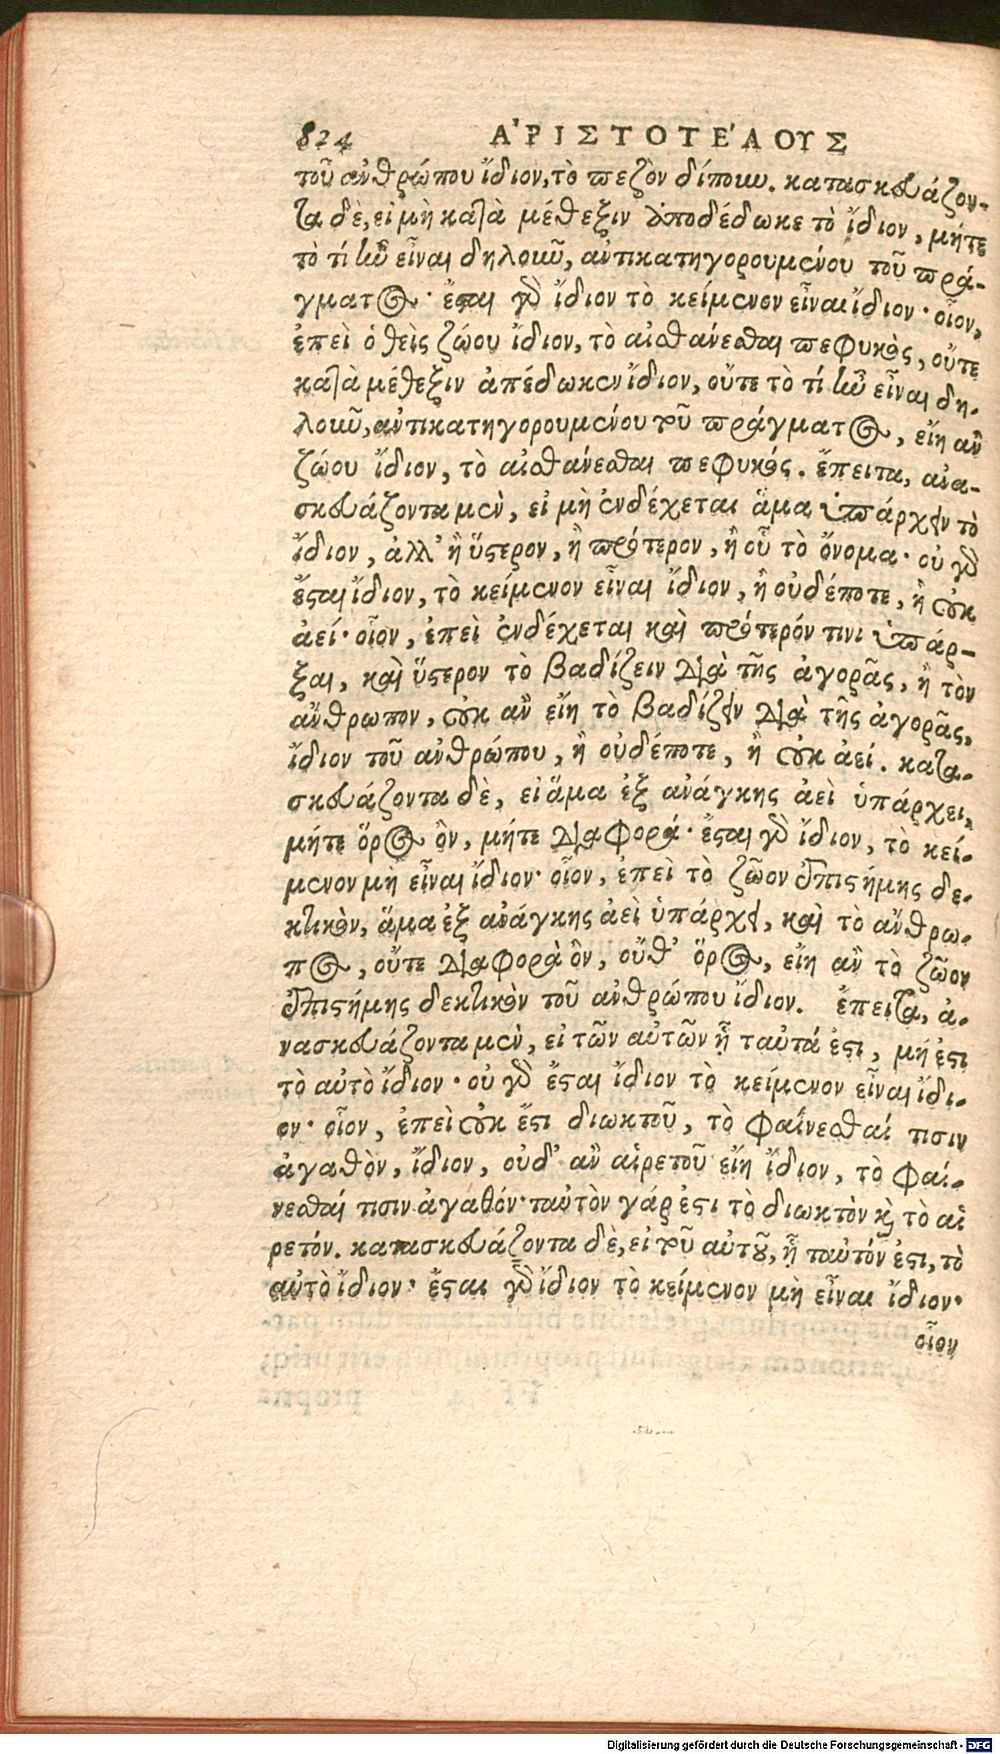 824 ΑΡΙΣΤΟΤΕΛΟΥΣ
τοῦ ἀνθρώπου ἴδιον, τὸ πεζὸν δίπουν. κατασκευάζον-
τα δὲ, εἰ μὴ κατὰ μέθεξιν ἀποδέδωκε τὸ ἴδιον, μήτε
τὸ τί ἦν εἶναι δηλοῦν, ἀντικατηγορουμένου τοῦ πρά-
γματος· ἔσται γὰρ ἴδιον τὸ κείμενον εἶναι ἴδιον· οἷον,
ἐπεὶ ὁ θεὶς ζώου ἴδιον, τὸ αἰσθάνεσθαι πεφυκὸς, οὔτε
κατὰ μέθεξιν ἀπέδωκεν ἴδιον, οὔτε τὸ τί ἦν εἶναι δη-
λοῦν, ἀντικατηγορουμένου τοῦ πράγματος, εἴη ἂν
ζώου ἴδιον, τὸ αἰσθάνεσθαι πεφυκός. ἔπειτα, ἀνα-
σκευάζοντα μὲν, εἰ μὴ ἐνδέχεται ἅμα ὑπάρχειν τὸ
ἴδιον, ἀλλ' ἢ ὕστερον, ἢ πρότερον, ἢ οὗ τὸ ὄνομα· οὐ γὰρ
ἔσται ἴδιον, τὸ κείμενον εἶναι ἴδιον, ἢ οὐδέποτε, ἢ οὐκ
ἀεί· οἷον, ἐπεὶ ἐνδέχεται καὶ πρότερόν τινι ὑπάρ-
ξαι, καὶ ὕστερον τὸ βαδίζειν διὰ τῆς ἀγορᾶς, ἢ τὸν
ἄνθρωπον, οὐκ ἂν εἴη τὸ βαδίζειν διὰ τῆς ἀγορᾶς,
ἴδιον τοῦ ἀνθρώπου, ἢ οὐδέποτε, ἢ οὐκ ἀεί. κατα-
σκευάζοντα δὲ, εἰ ἅμα ἐξ ἀνάγκης ἀεὶ ὑπάρχει,
μήτε ὅρος ὂν, μήτε διαφορά· ἔσται γὰρ ἴδιον, τὸ κεί-
μενον μὴ εἶναι ἴδιον· οἷον, ἐπεὶ τὸ ζῶον ἐπιστήμης δε-
κτικὸν, ἅμα ἐξ ἀνάγκης ἀεὶ ὑπάρχει, καὶ τὸ ἄνθρω-
πος, οὔτε διαφορὰ ὂν, οὔθ' ὅρος, εἴη ἂν τὸ ζῶον
ἐπιστήμης δεκτικὸν τοῦ ἀνθρώπου ἴδιον. ἔπειτα, ἀ-
νασκευάζοντα μὲν, εἰ τῶν αὐτῶν ᾗ ταὐτά ἐστι, μή ἐστι
τὸ αὐτὸ ἴδιον· οὐ γὰρ ἔσται ἴδιον τὸ κείμενον εἶναι ἴδι-
ον· οἷον, ἐπεὶ οὐκ ἔστι διωκτοῦ, τὸ φαίνεσθαί τισιν
ἀγαθὸν, ἴδιον, οὐδ' ἂν αἱρετοῦ εἴη ἴδιον, τὸ φαί-
νεσθαί τισιν ἀγαθόν· ταὐτὸν γάρ ἐστι τὸ διωκτὸν καὶ τὸ αἱ
ρετόν. κατασκευάζοντα δὲ, εἰ τοῦ αὐτοῦ, ᾗ ταὐτόν ἐστι, τὸ
αὐτὸ ἴδιον· ἔσται γὰρ ἴδιον τὸ κείμενον μὴ εἶναι ἴδιον·
οἷον
Digitalisierung gefördert durch die Deutsche Forschungsgemeinschaft - DFG